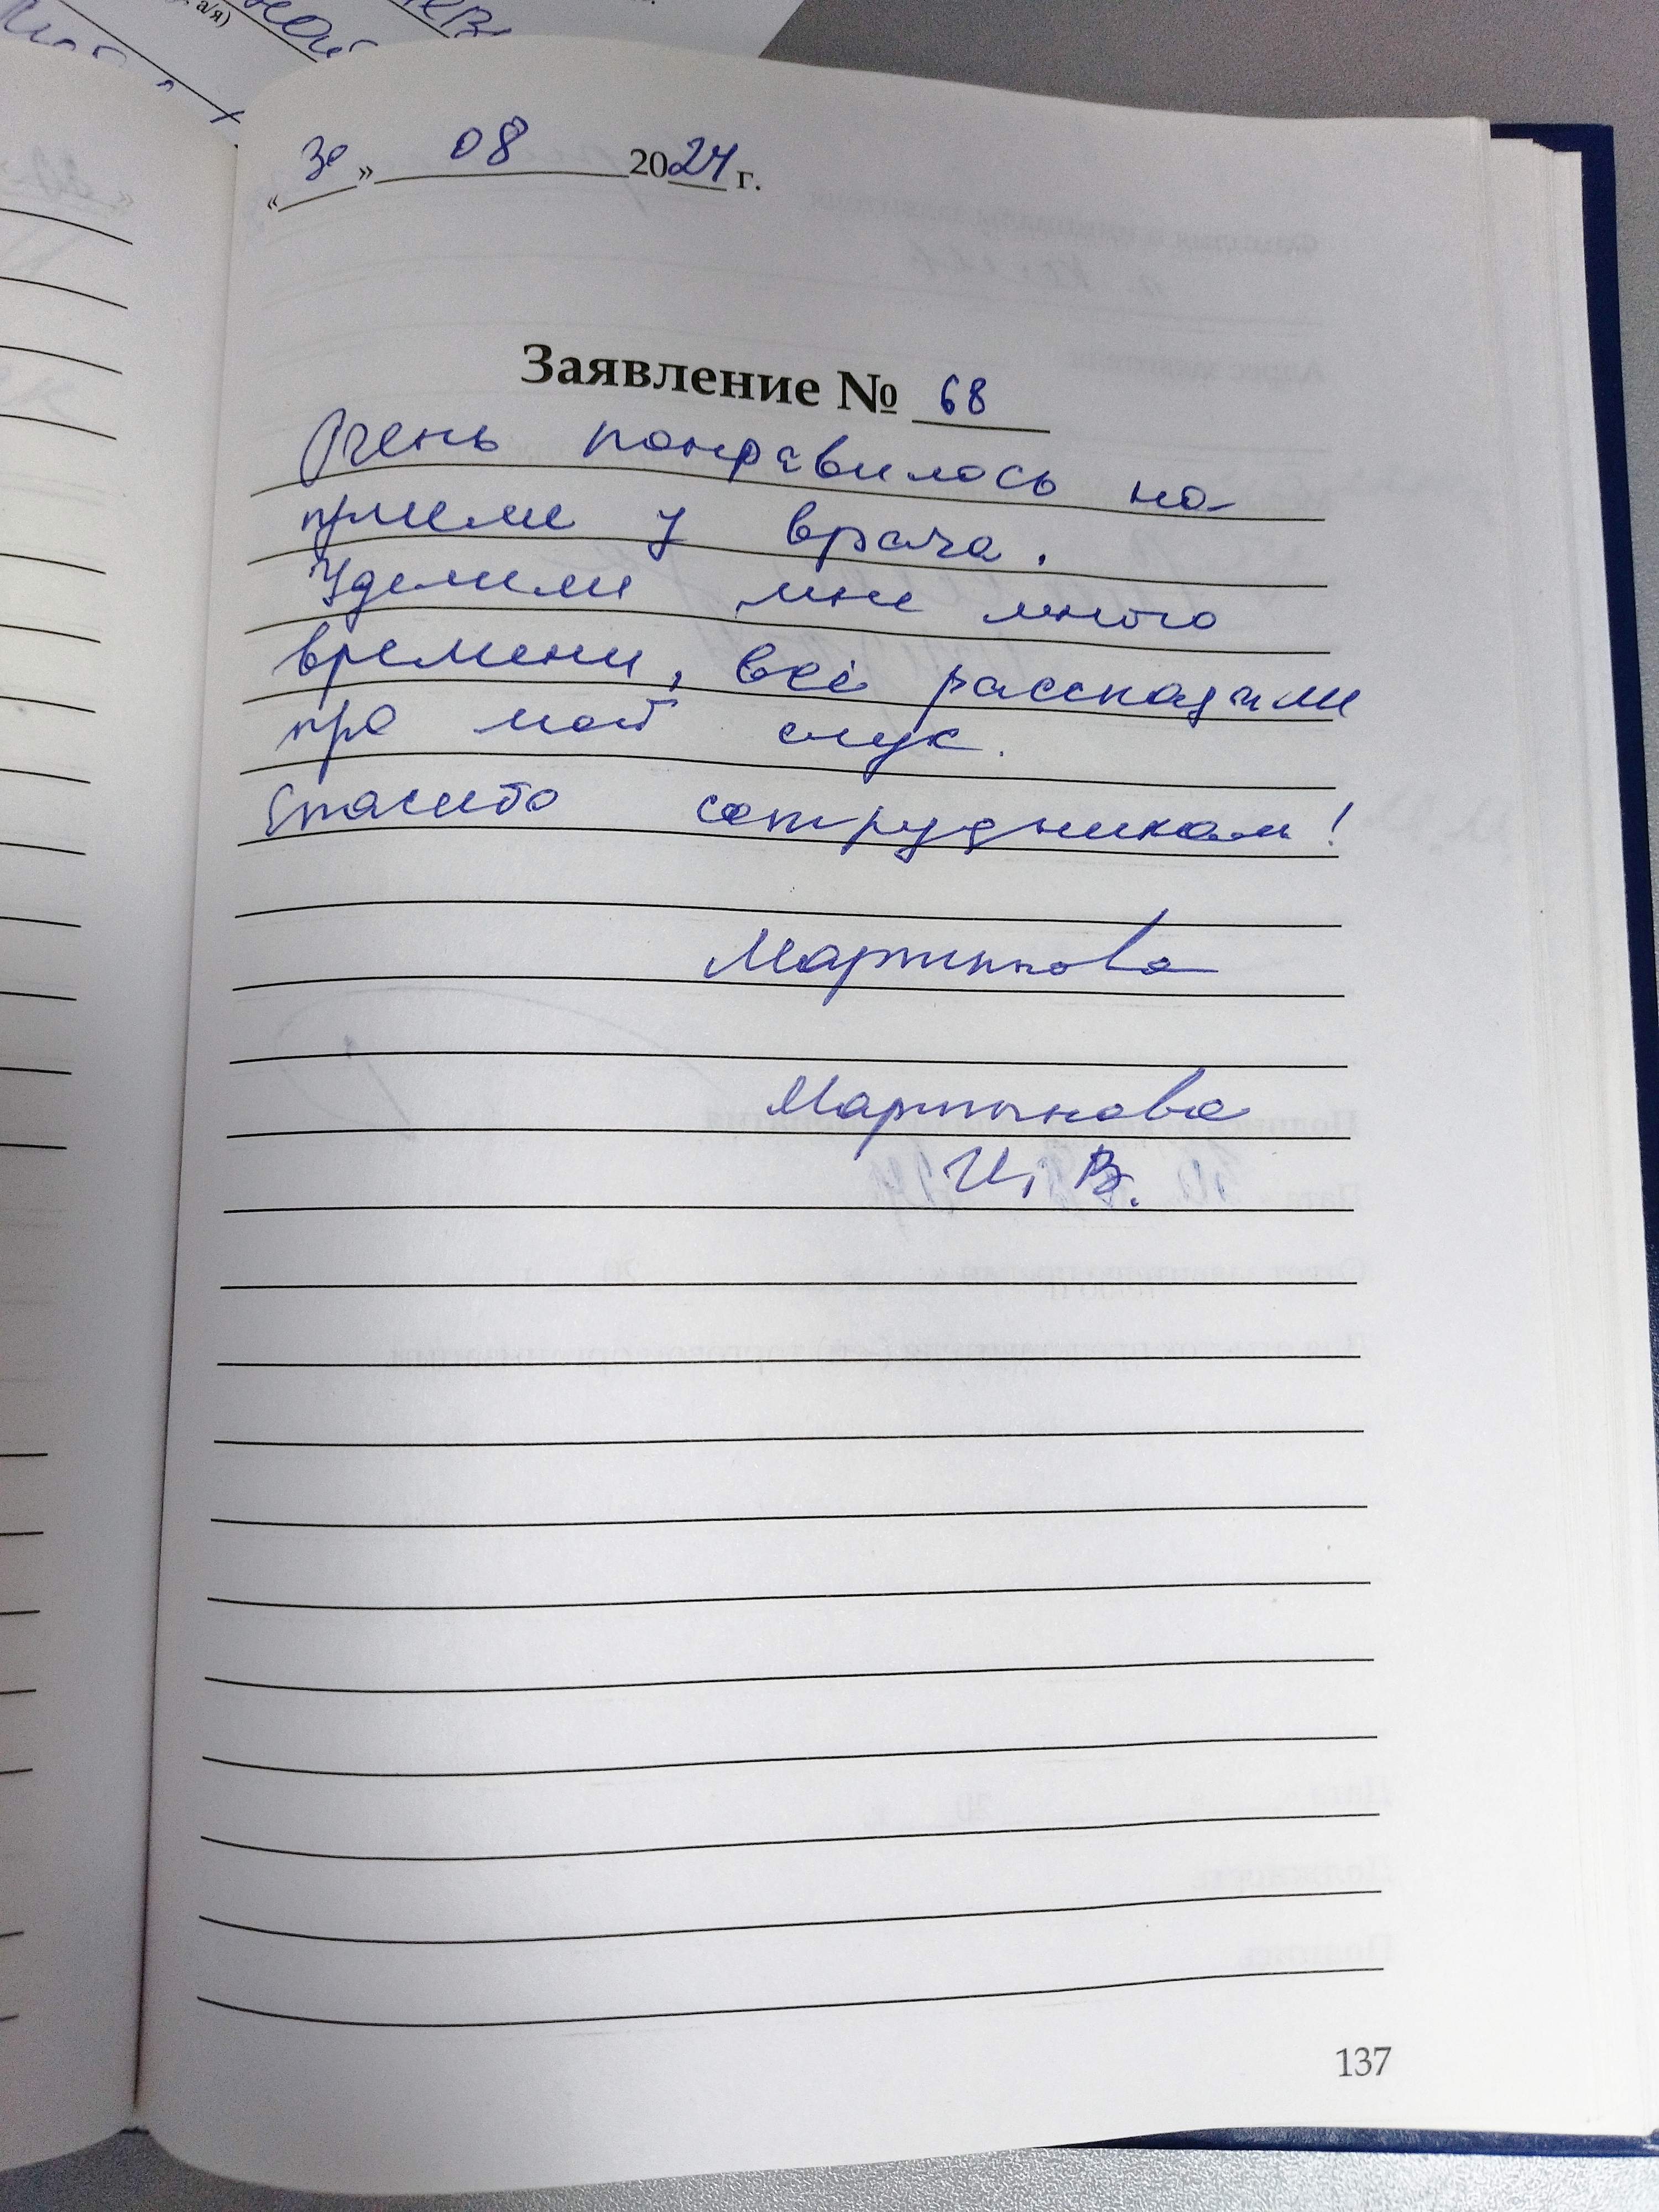 а/я)
«30» 08 2024 г.
Заявление № 68
Очень понравилось на
приеме у врача.
Уделили мне много
времени, всё рассказали
про мой слух.
Спасибо сотрудникам!
Мартынова
Мартынова
И. В.
137